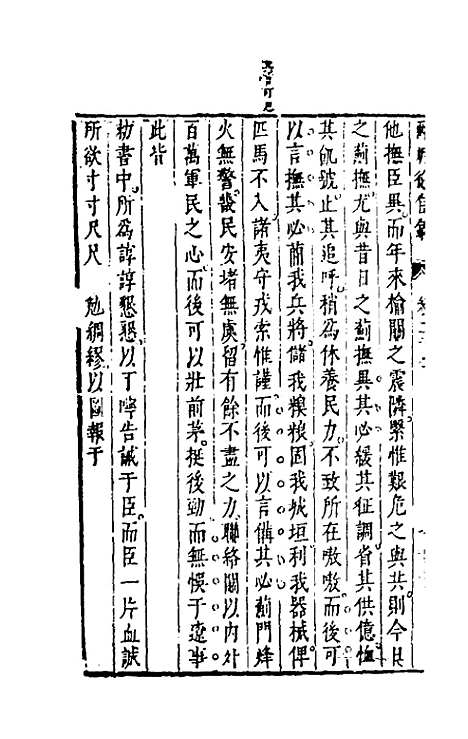 他撫臣異而年來榆關之震隣緊惟艱危之與共則今日
之薊撫尤與昔日之薊撫異其必緩其征調省其供億恤
其飢號止其追呼稍爲休養民力不致所在嗷嗷而後可
以言撫其必蕑我兵將儲我糗粮固我城垣利我器械俾
匹馬不入諸夷守戎索惟謹而後可以言備其必薊門烽
火無警畿民安堵無虞留有餘不盡之力聯絡關以內外
百萬軍民之心而後可以壯前茅挺後勁而無悞于遼事
此皆
初書中所爲諄諄懇懇以丁寧告誡于臣而臣一片血誠
所欲寸寸尺尺 勉綢繆以圖報于